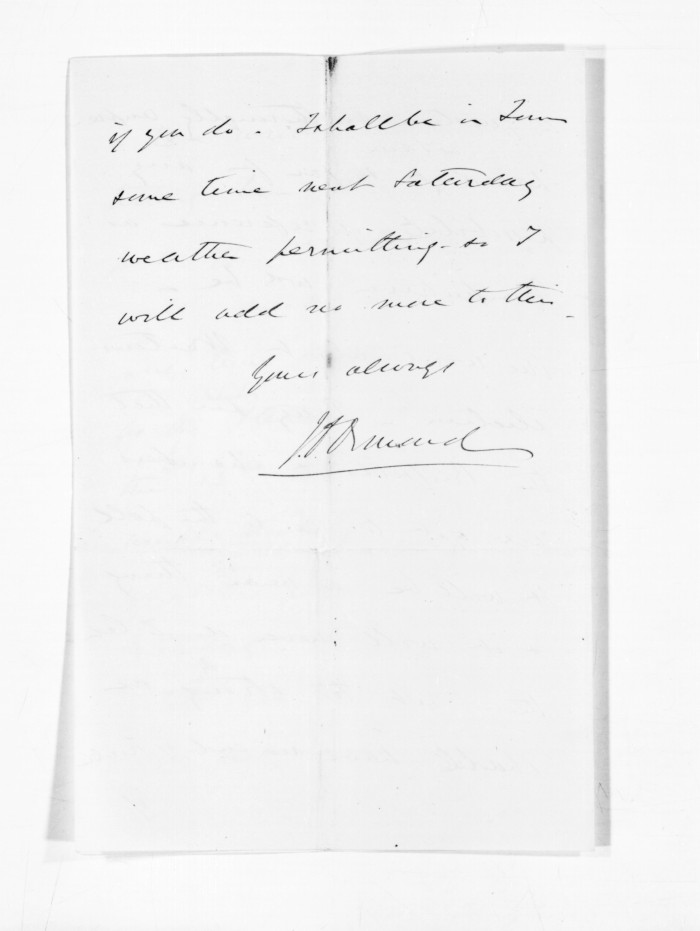 if you do. I shall be in Town
some time next Saturday
weather permitting - so I
will add no more to this.
Yours always
J. D. Ormond